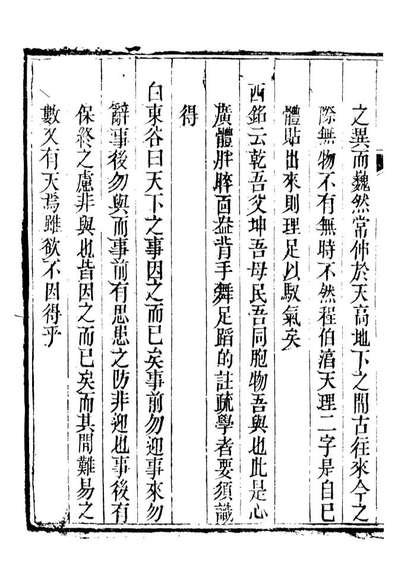 之異而巍然常伸於天高地下之間古往來今之
際無物不有無時不然程伯滔天理二字是自己
體貼出來則理足以馭氣矣
西銘云乾吾父坤吾母民吾同胞物吾與也此是心
廣體胖睟面盎背手舞足蹈的註疏學者要須識
得
白東谷曰天下之事因之而已矣事前勿迎事來勿
辭事後勿與而事前有思患之防非迎也事後有
保終之慮非與也皆因之而已矣而其間難易之
數又有天焉雖欲不因得乎